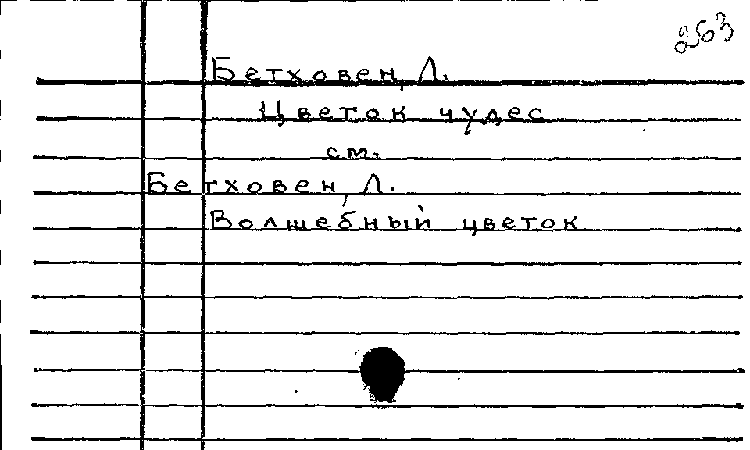 263
Бетховен, Л.
Цветок чудес
см.
Бетховен, Л.
Волшебный цветок